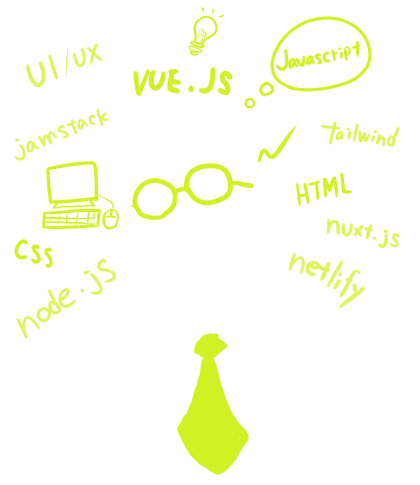 UI/UX
VUE.JS
Javascript
jamstack
tailwind
HTML
nuxt.js
CSS
netlify
node.js